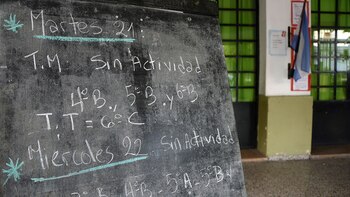 Martes 21:
T.M. Sin Actividad
4ºB., 5ºB. y 6ºB
T.T = 6ºC
Miercoles 22 Sin Actividad
4ºB - 5ºA - 5ºB -